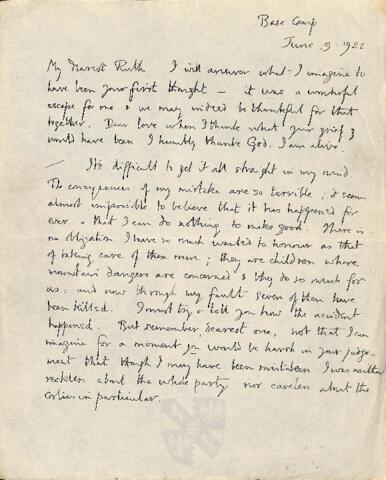 Base Camp
June 9. 1922
My dearest Ruth I will answer what I imagine to
have been your first thought — it was a wonderful
escape for me & we may indeed be thankful for that
together. Dear love when I think what your grief
would have been I humbly thank God I am alive.
— It's difficult to get it all straight in my mind.
The consequences of my mistake are so terrible; it seems
almost impossible to believe that it has happened for
ever & that I can do nothing to make good. There is
no obligation I have so much wanted to honour as that
of taking care of these men; they are children where
mountain dangers are concerned & they do so much for
us: and now through my fault seven of them have
been killed. I must try & tell you how the accident
happened. But remember dearest one, not that I can
imagine for a moment you would be harsh in your judge-
ment that though I may have been mistaken I was neither
reckless about the whole party nor careless about the
coolies in particular.